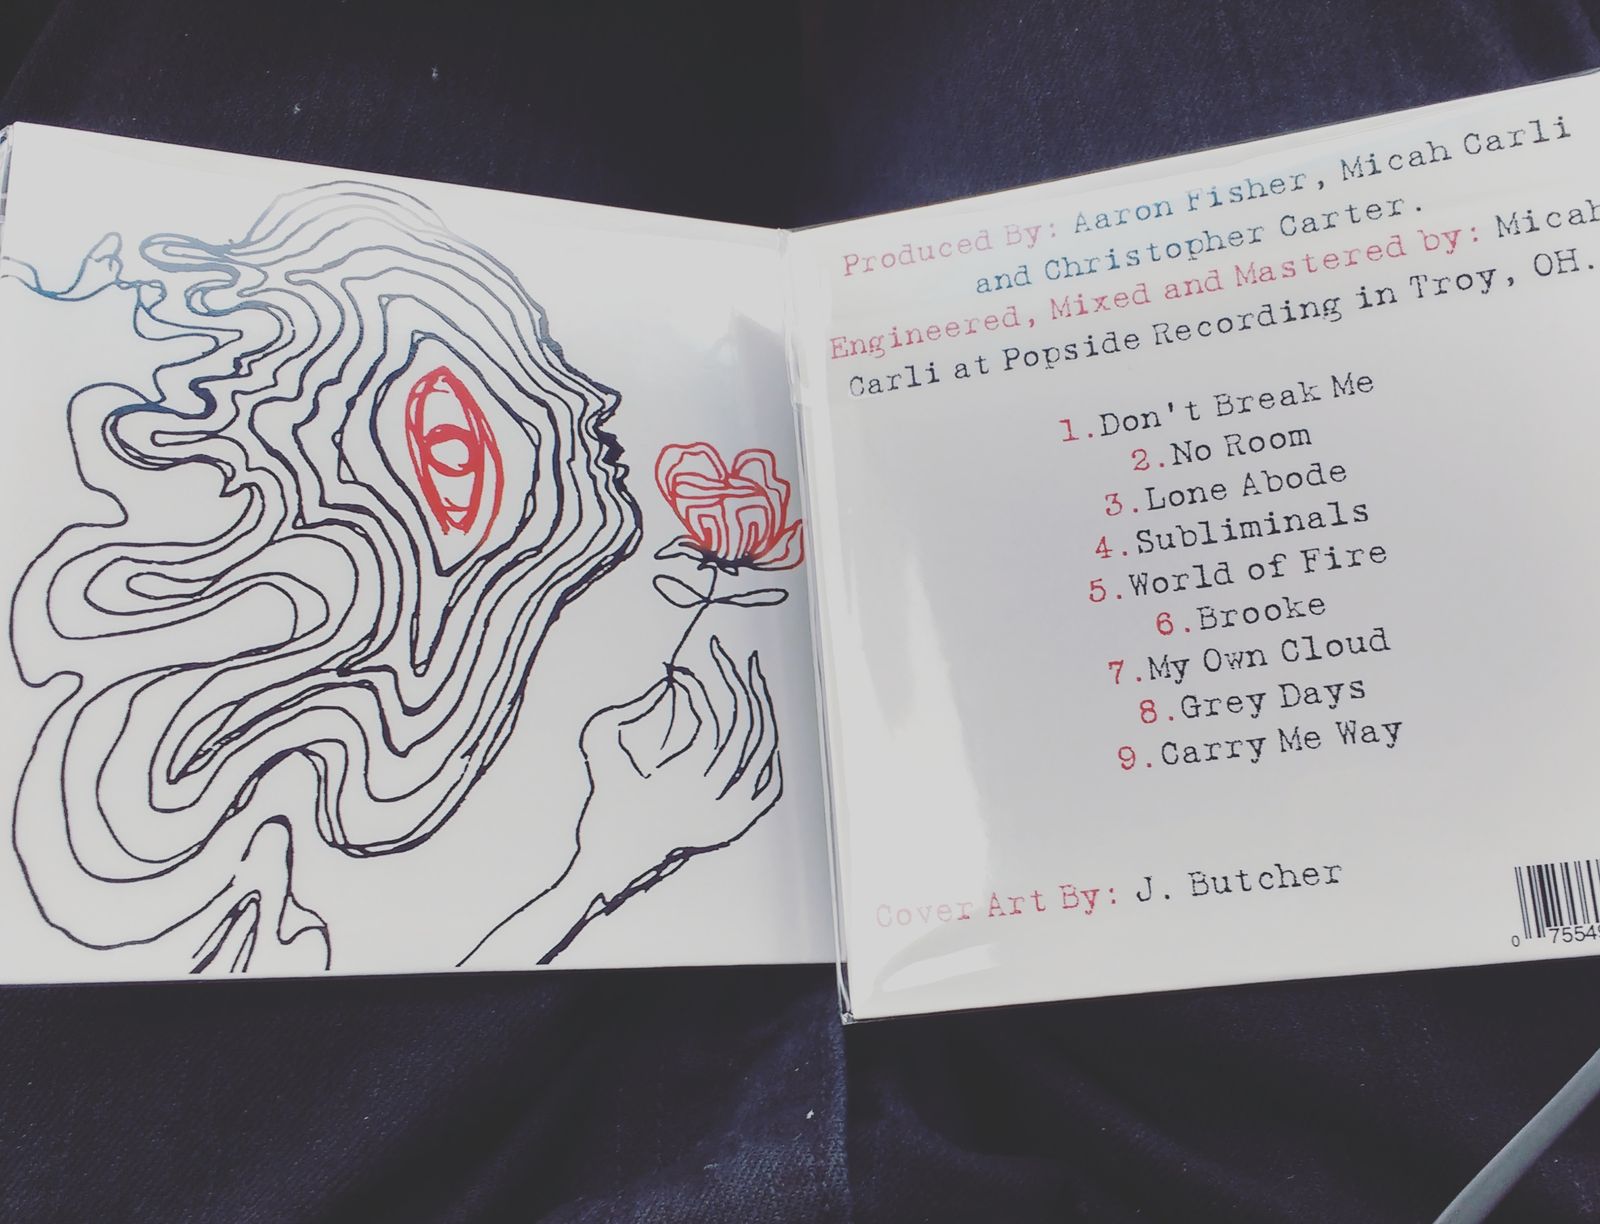 Produced By: Aaron Fisher, Micah Carli
and Christopher Carter.
Engineered, Mixed and Mastered by: Micah
Carli at Popside Recording in Troy, OH.
1.Don't Break Me
2.No Room
3.Lone Abode
4.Subliminals
5.World of Fire
6.Brooke
7.My Own Cloud
8.Grey Days
9.Carry Me Way
Cover Art By: J. Butcher
0 7554